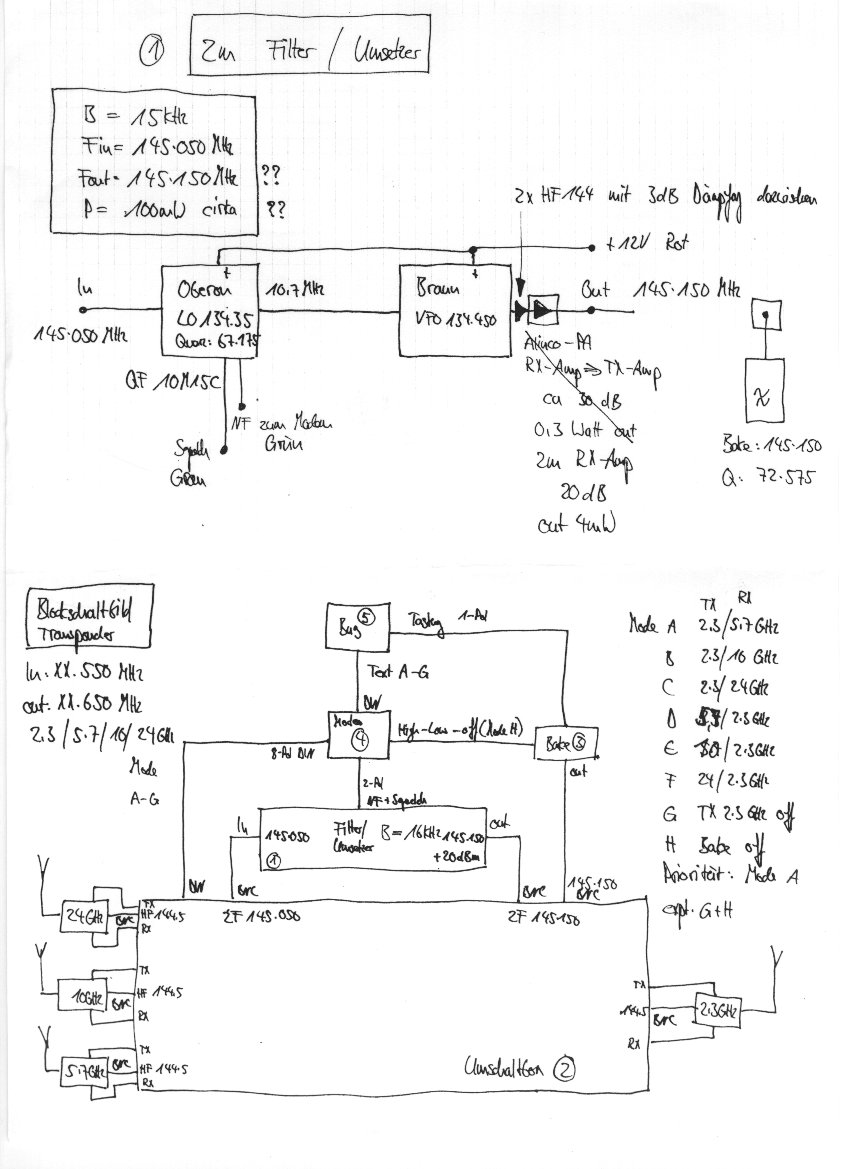 ① 2m Filter / Umsetzer
B = 15kHz
Fin= 145.050 MHz
Fout= 145.150 MHz ??
P = 100mW cirka ??
2x HF144 mit 3dB dazwischen
+12V Rot
In
145.050 MHz
Oberon
LO 134.35
Quarz: 67.175
10.7MHz
+
Braun
VFO 134.450
+
Out 145.150 MHz
QF 10M15C
NF zum Modem
Grün
Squelch
Grün
Alinco-PA
RX-Amp ⇒ TX-Amp
ca 30 dB
0,3 Watt out
2m RX-Amp
20dB
out 4mW
Bake: 145.150
Q: 72.575
Blockschaltbild
Transponder
In: XX.550 MHz
out: XX.650 MHz
2.3 / 5.7 / 10 / 24GHz
Mode
A-G
Bug ⑤
Tastung 1-Ad
Text A-G
Modem
④
8-Ad
High-Low-off (Mode H)
Bake ③
out
2-Ad
NF + Squelch
In
145.050 Filter/ B = 16kHz 145.150
Umsetzer
① +20dBm
out
BNC
ZF 145.050
BNC
ZF 145.150
145.150
BNC
TX RX
Mode A 2.3/5.7 GHz
B 2.3/10 GHz
C 2.3/24GHz
D /2.3GHz
E 10/2.3GHz
F 24/2.3GHz
G TX 2.3GHz off
H Bake off
Priorität: Mode A
G+H
24GHz
BNC
TX
HF 144.5
RX
10GHz
BNC
TX
HF 144.5
RX
5.7GHz
BNC
TX
HF 144.5
RX
TX
144.5
RX
BNC
2.3GHz
②